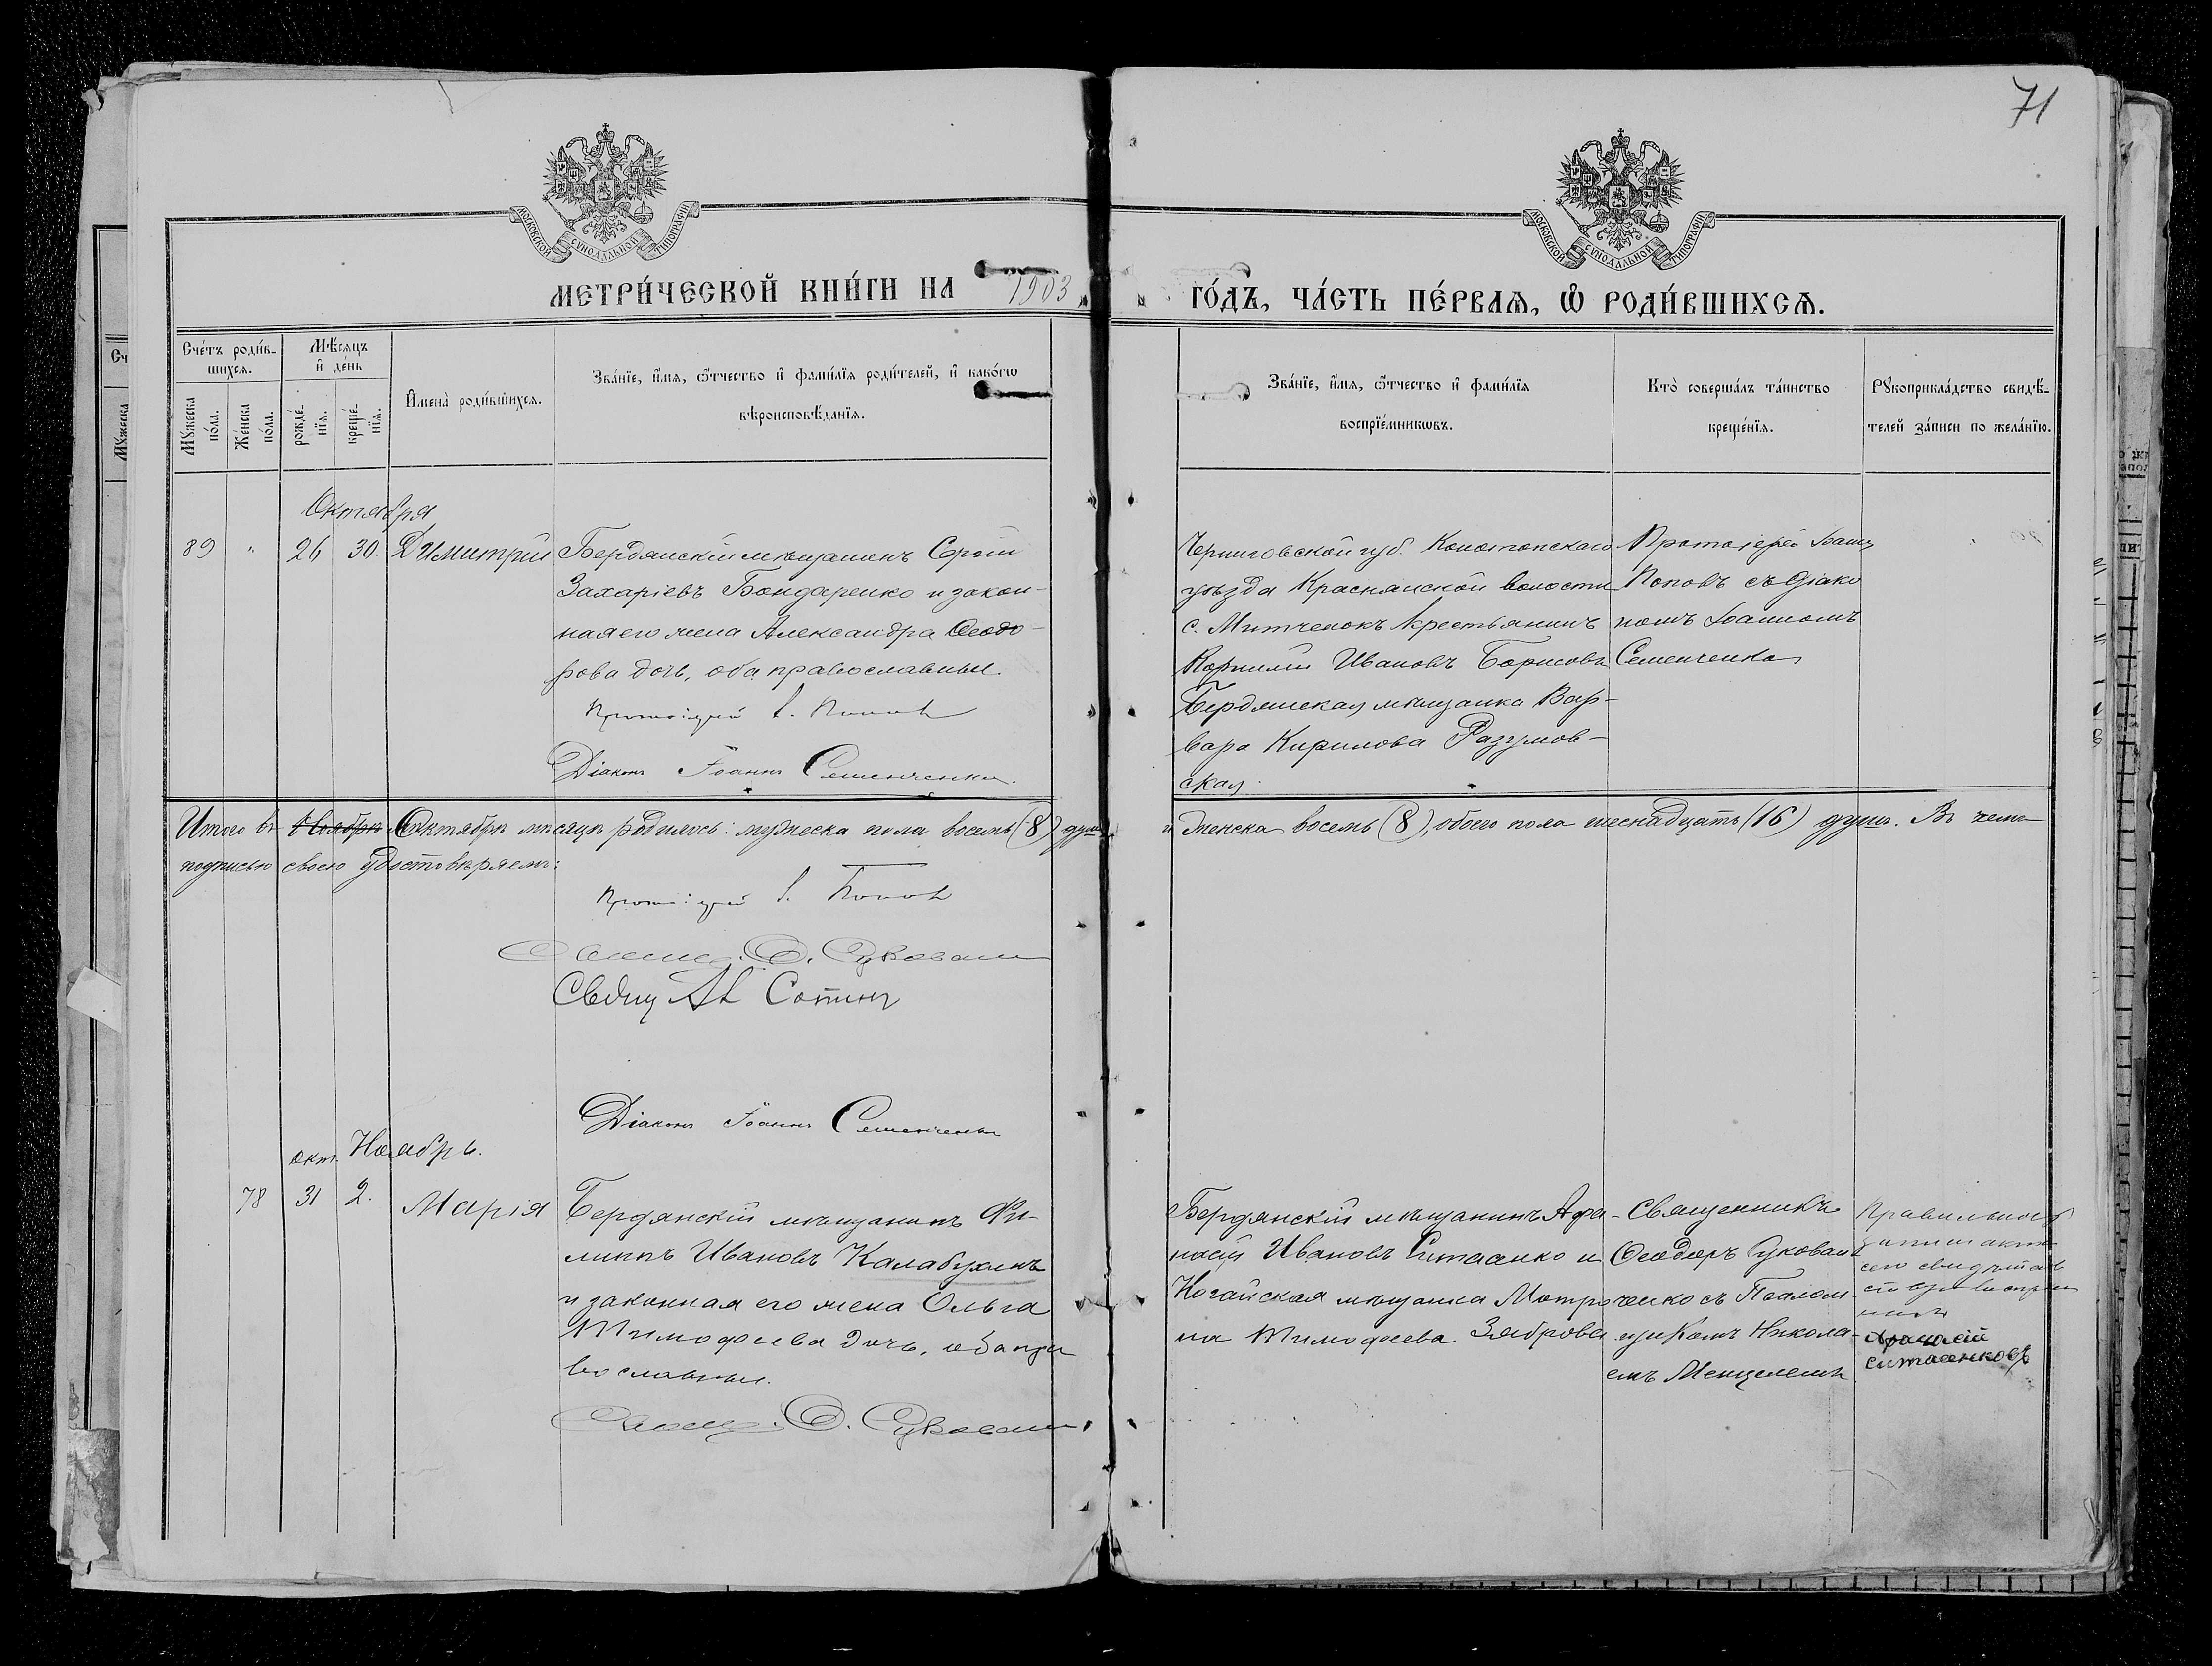 71
МОСКОВСКОЙ СѴНОДАЛЬНОЙ ТИПОГРАФІИ
МОСКОВСКОЙ СѴНОДАЛЬНОЙ ТИПОГРАФІИ
МЕТРИ́ЧЕСКОЙ КНИ́ГИ НА 1903
ГО́ДЪ, ЧА́СТЬ ПЕ́РВАѦ, Ѡ҆ РОДИ́ВШИХСѦ.
Сче́тъ роди́в-
шихсѧ.
Мꙋ́жеска
по́ла.
Же́нска
по́ла.
Мѣ́сѧцъ
и҆ де́нь
рожде́-
нїѧ.
креще́-
нїѧ.
И҆мена̀ роди́вшихсѧ.
Зва́нїе, и҆́мѧ, ѻ҆́тчество и҆ фами́лїѧ роди́телей, и҆ како́гѡ
вѣроисповѣ́данїѧ.
Зва́нїе, и҆́мѧ, ѻ҆́тчество и҆ фами́лїѧ
воспрїе́мникѡвъ.
Кто̀ соверша́лъ та́инство
креще́нїѧ.
Рꙋкоприкла́дство свидѣ́-
телей за́писи по жела́нїю.
Октября
89 " 26 30. Димитрій
Бердянскій мѣщанинъ Сергій
Захаріевъ Бондаренко и закон-
ная его жена Александра Ѳеодо-
рова дочь, оба православные.
Протоіерей І. Попов
Діаконъ Іоаннъ Семенченко.
Черниговской губ. Конотопскаго
уѣзда Краснянской волости
с. Митченокъ крестьянинъ
Корнилій Ивановъ Борисовъ
Бердянская мѣщанка Вар-
вара Кирилова Разумов-
ская.
Протоіерей Іоаннъ
Поповъ съ діако
номъ Іоанномъ
Семенченко
Итого въ Ноябрѣ Октябрѣ мѣсяцѣ родилось: мужеска пола восемь (8) душъ
и женска восемь (8), обоего пола шеснадцать (16) душъ. Въ чемъ
подписью своею удостовѣряемъ:
Протоіерей І. Попов
Ѳ.
Діаконъ Іоаннъ Семенченко
окт. Ноябрь.
78 31 2. Марія
Бердянскій мѣщанинъ Фи-
липпъ Ивановъ Калабухинъ
и законная его жена Ольга
Тимофеева дочь, оба пра
вославные.
Ѳ.
Бердянскій мѣщанинъ Афа-
насій Ивановъ Ситаенко и
Ногайская мѣщанка Матро
на Тимофеева Зяброва
Священникъ
Ѳеодоръ
ченко съ Псалом-
щикомъ Никола-
емъ
Правильность
записи акта
Афанасій